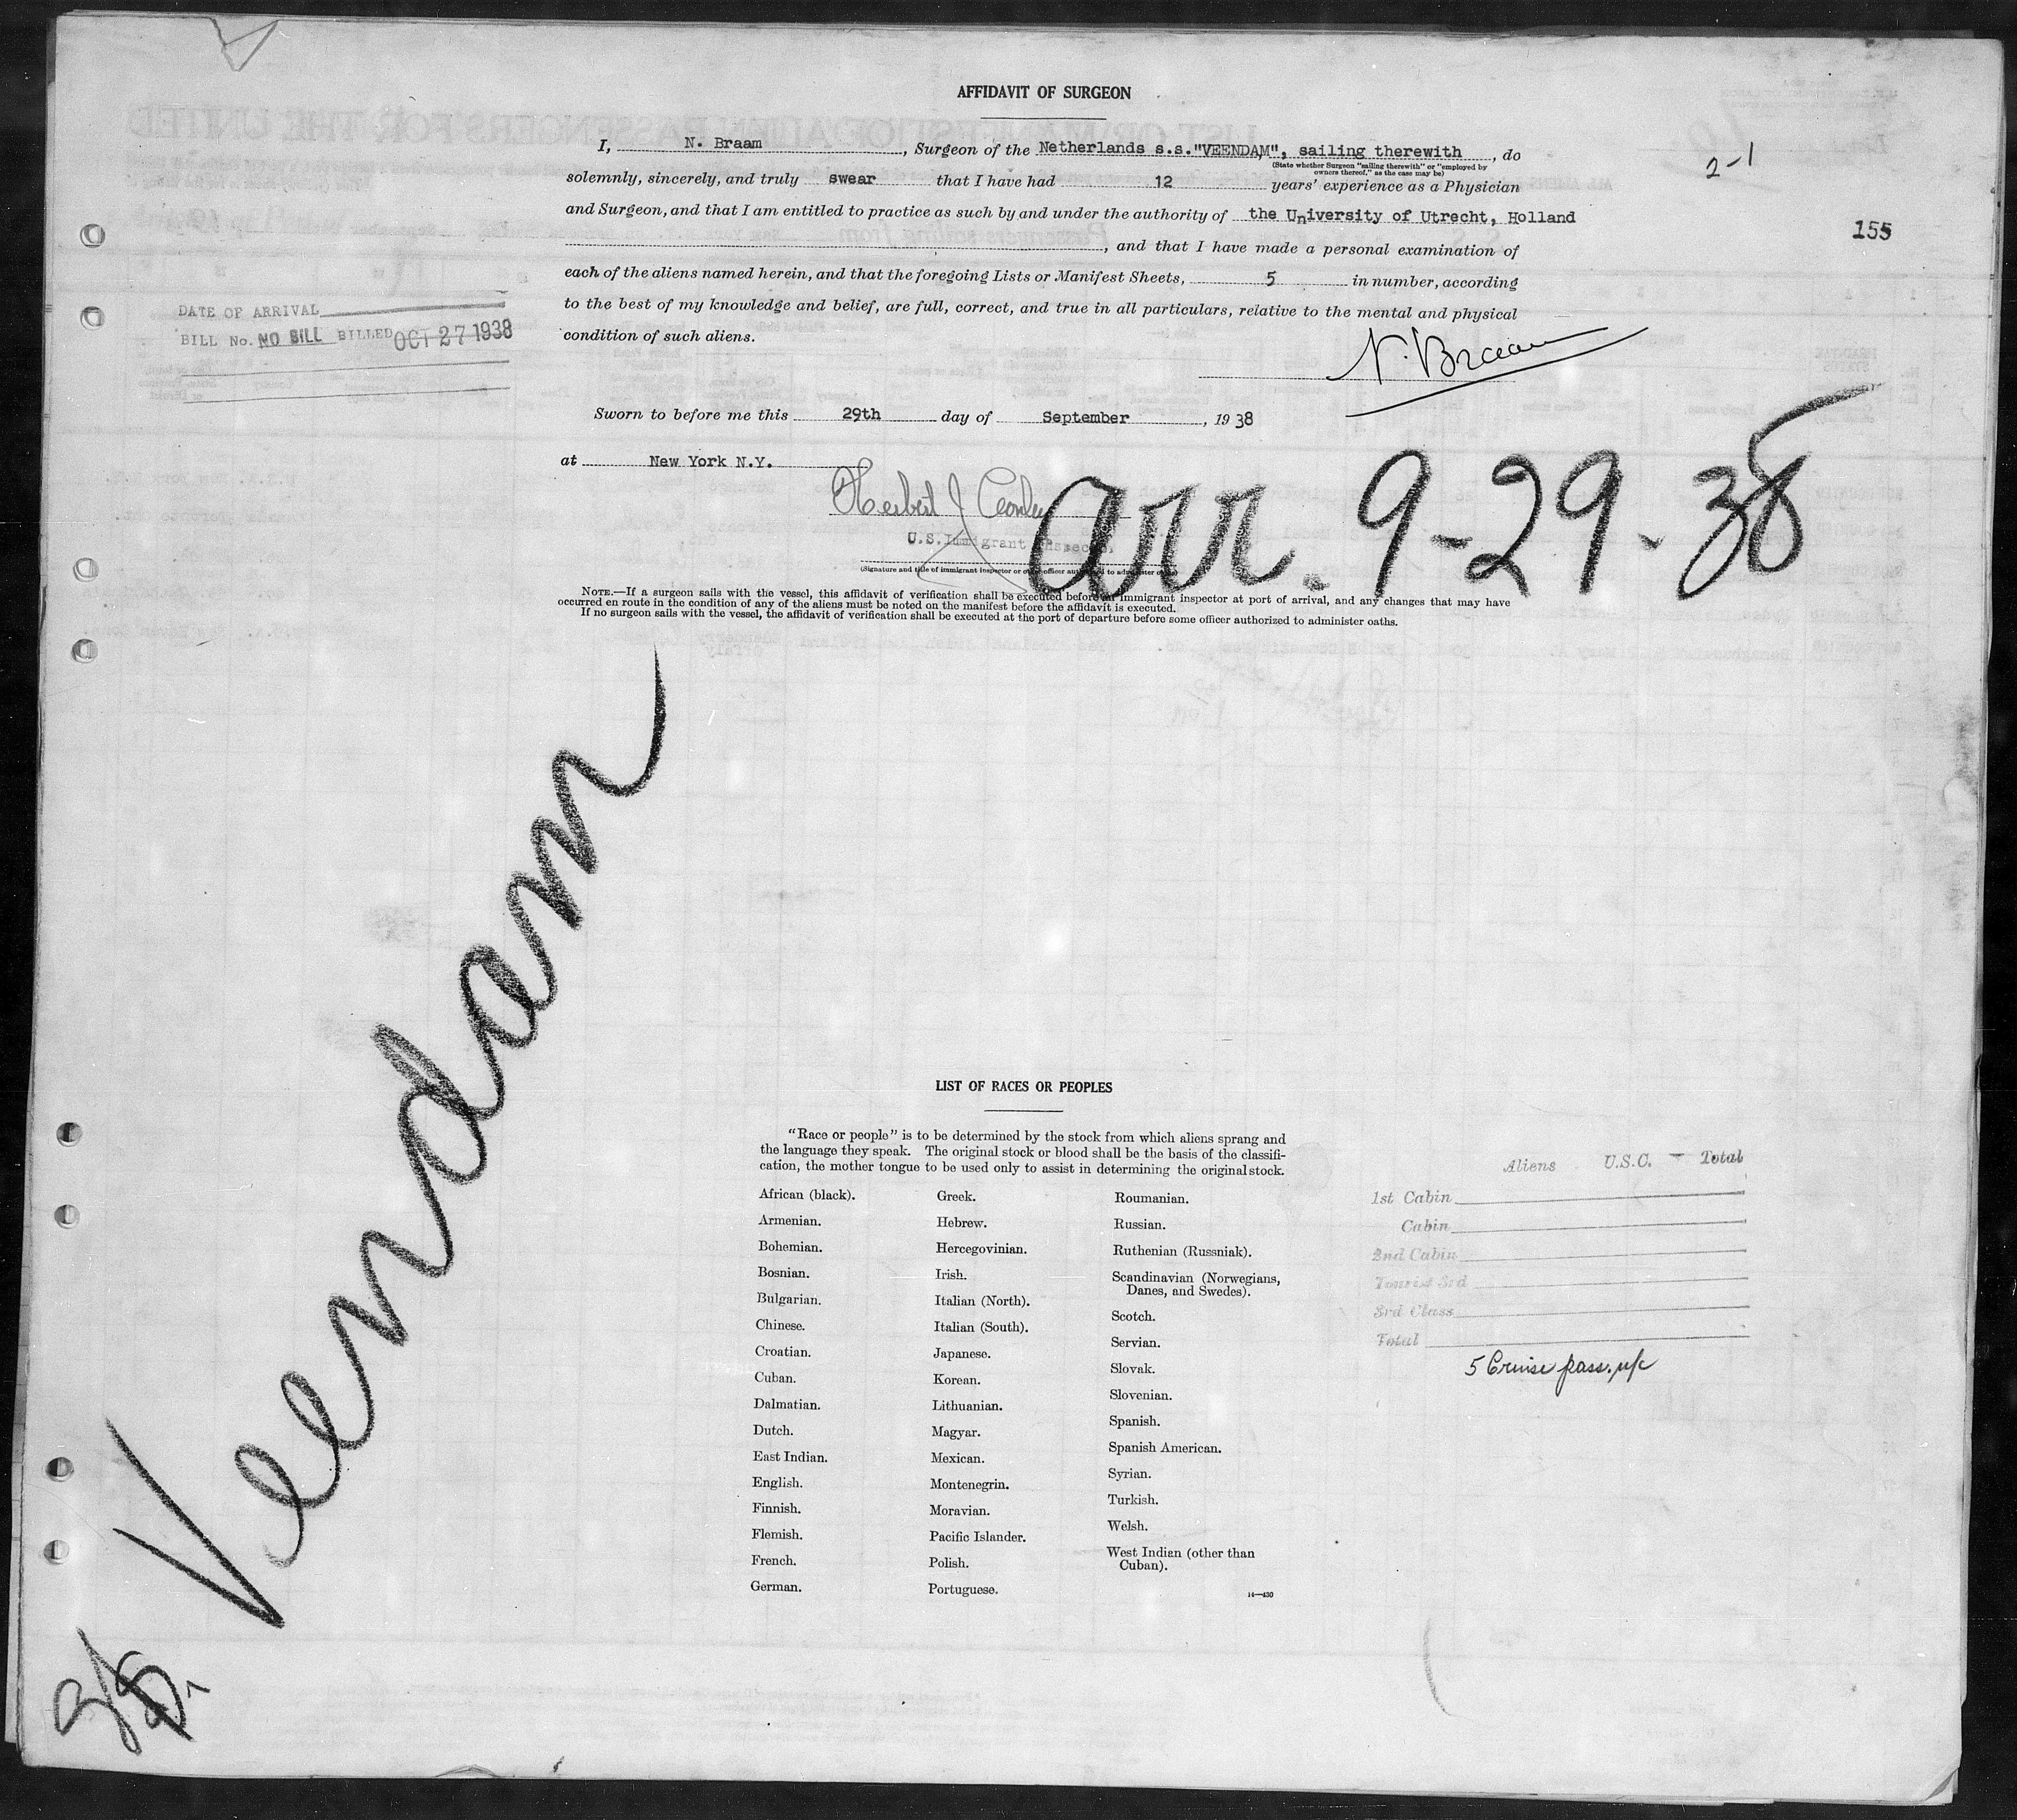 AFFIDAVIT OF SURGEON
I, N. Braam, Surgeon of the Netherlands s.s."VEENDAM", sailing therewith, do
(State whether Surgeon "sailing therewith" or "employed by
owners thereof," as the case may be)
solemnly, sincerely, and truly swear that I have had 12 years' experience as a Physician
and Surgeon, and that I am entitled to practice as such by and under the authority of the University of Utrecht, Holland
, and that I have made a personal examination of
each of the aliens named herein, and that the foregoing Lists or Manifest Sheets, 5 in number, according
to the best of my knowledge and belief, are full, correct, and true in all particulars, relative to the mental and physical
condition of such aliens.
2-1
155
DATE OF ARRIVAL
BILL No. NO BILL BILLED OCT 27 1938
N. Braam
Sworn to before me this 29th day of September, 1938
at New York N.Y.
Herbert J
U.S. Immigrant Inspector.
arr. 9-29-38
(Signature and title of immigrant inspector or other officer authorized to administer oaths)
NOTE.—If a surgeon sails with the vessel, this affidavit of verification shall be executed before an immigrant inspector at port of arrival, and any changes that may have
occurred en route in the condition of any of the aliens must be noted on the manifest before the affidavit is executed.
If no surgeon sails with the vessel, the affidavit of verification shall be executed at the port of departure before some officer authorized to administer oaths.
Veendam
LIST OF RACES OR PEOPLES
"Race or people" is to be determined by the stock from which aliens sprang and
the language they speak. The original stock or blood shall be the basis of the classifi-
cation, the mother tongue to be used only to assist in determining the original stock.
African (black).
Armenian.
Bohemian.
Bosnian.
Bulgarian.
Chinese.
Croatian.
Cuban.
Dalmatian.
Dutch.
East Indian.
English.
Finnish.
Flemish.
French.
German.
Greek.
Hebrew.
Hercegovinian.
Irish.
Italian (North).
Italian (South).
Japanese.
Korean.
Lithuanian.
Magyar.
Mexican.
Montenegrin.
Moravian.
Pacific Islander.
Polish.
Portuguese.
Roumanian.
Russian.
Ruthenian (Russniak).
Scandinavian (Norwegians,
Danes, and Swedes).
Scotch.
Servian.
Slovak.
Slovenian.
Spanish.
Spanish American.
Syrian.
Turkish.
Welsh.
West Indian (other than
Cuban).
14—430
Aliens U.S.C. Total
1st Cabin
Cabin
2nd Cabin
Tourist 3rd
3rd Class
Total
5 Cruise pass.